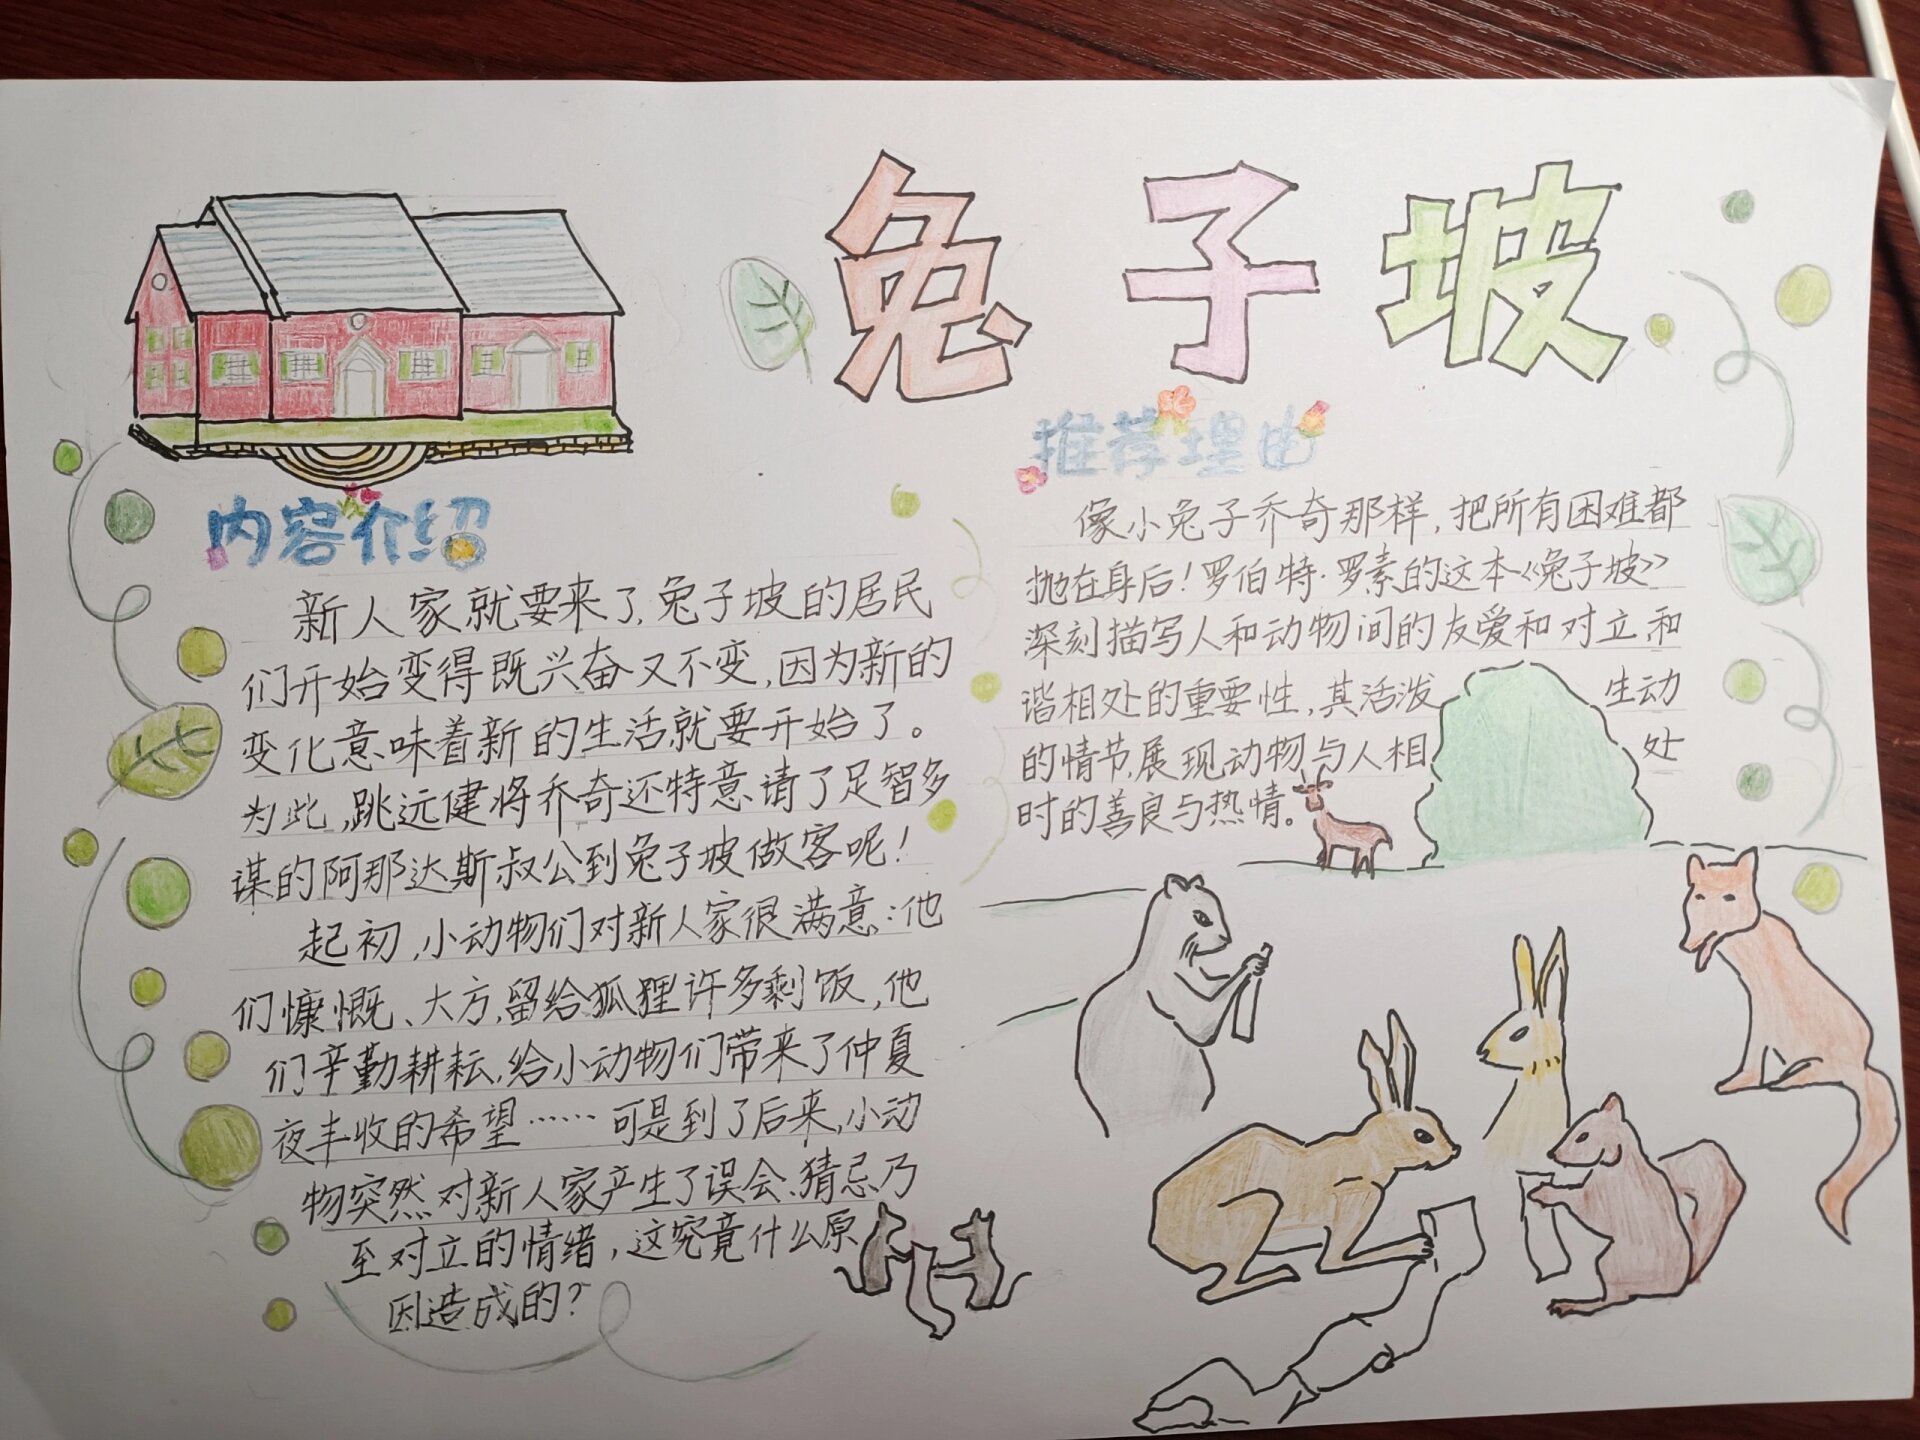 兔子坡
内容介绍
新人家就要来了，兔子坡的居民
们开始变得既兴奋又不变，因为新的
变化意味着新的生活就要开始了。
为此，跳远健将乔奇还特意请了足智多
谋的阿那达斯叔公到兔子坡做客呢！
起初，小动物们对新人家很满意：他
们慷慨、大方，留给狐狸许多剩饭，他
们辛勤耕耘，给小动物们带来了仲夏
夜丰收的希望……可是到了后来，小动
物突然对新人家产生了误会、猜忌乃
至对立的情绪，这究竟什么原
因造成的？
推荐理由
像小兔子乔奇那样，把所有困难都
抛在身后！罗伯特·罗素的这本《兔子坡》
深刻描写人和动物间的友爱和对立，和
谐相处的重要性，其活泼生动
的情节，展现动物与人相处
时的善良与热情。